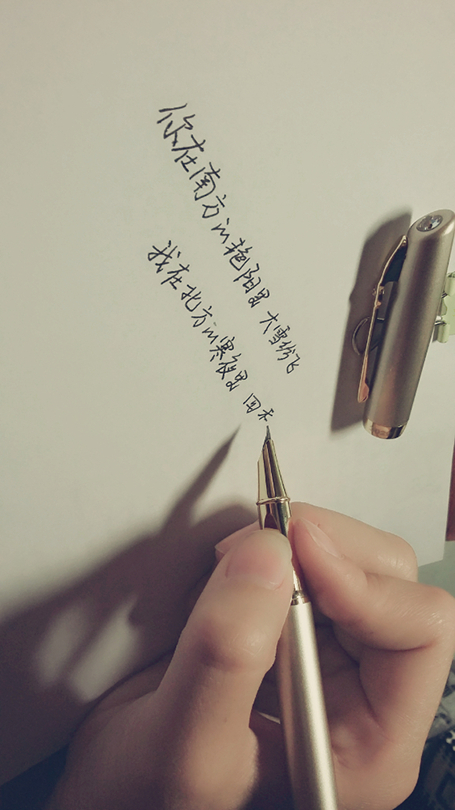 你在南方的艳阳里 大雪纷飞
我在北方的寒夜里 四季